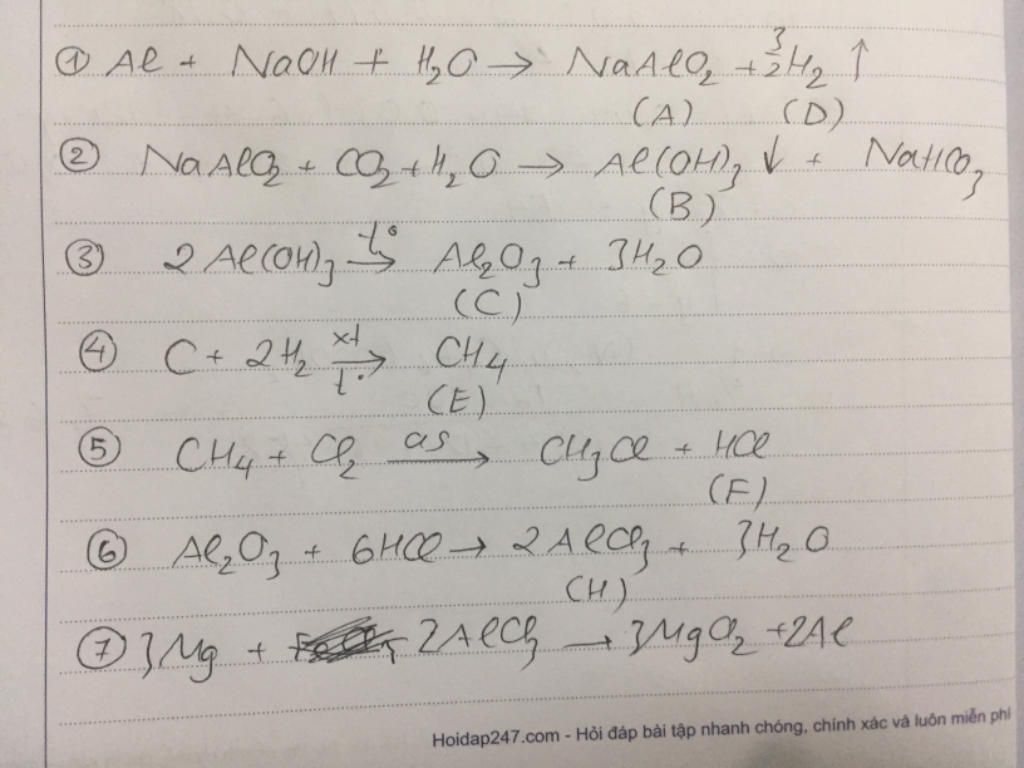 ① Al + NaOH + H₂O → NaAlO₂ + 3/2 H₂ ↑
(A) (D)
② NaAlO₂ + CO₂ + H₂O → Al(OH)₃ ↓ + NaHCO₃
(B)
③ 2Al(OH)₃ t° → Al₂O₃ + 3H₂O
(C)
④ C + 2H₂ xt t° → CH₄
(E)
⑤ CH₄ + Cl₂ as → CH₃Cl + HCl
(F)
⑥ Al₂O₃ + 6HCl → 2AlCl₃ + 3H₂O
(H)
⑦ 3Mg + 2AlCl₃ → 3MgCl₂ + 2Al
Hoidap247.com - Hỏi đáp bài tập nhanh chóng, chính xác và luôn miễn phí